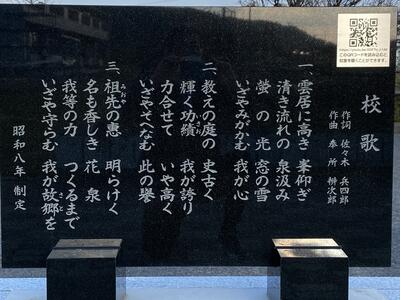 校歌
作詞 佐々木 兵四郎
作曲 泰所 栁次郎
一、雲居に高き 峯仰ぎ
清き流れの 泉汲み
螢の光 窓の雪
いざやみがかむ 我が心
二、教えの庭の 史古く
輝く功績 我が誇り
力合せて いや高く
いざやそへなむ 此の譽
三、祖先の恵 明らけく
名も香しき 花泉
我等の力 つくるまで
いざや守らむ 我が故郷を
昭和八年 制定
このQRコードを読み込むと、
校歌を聴くことができます。